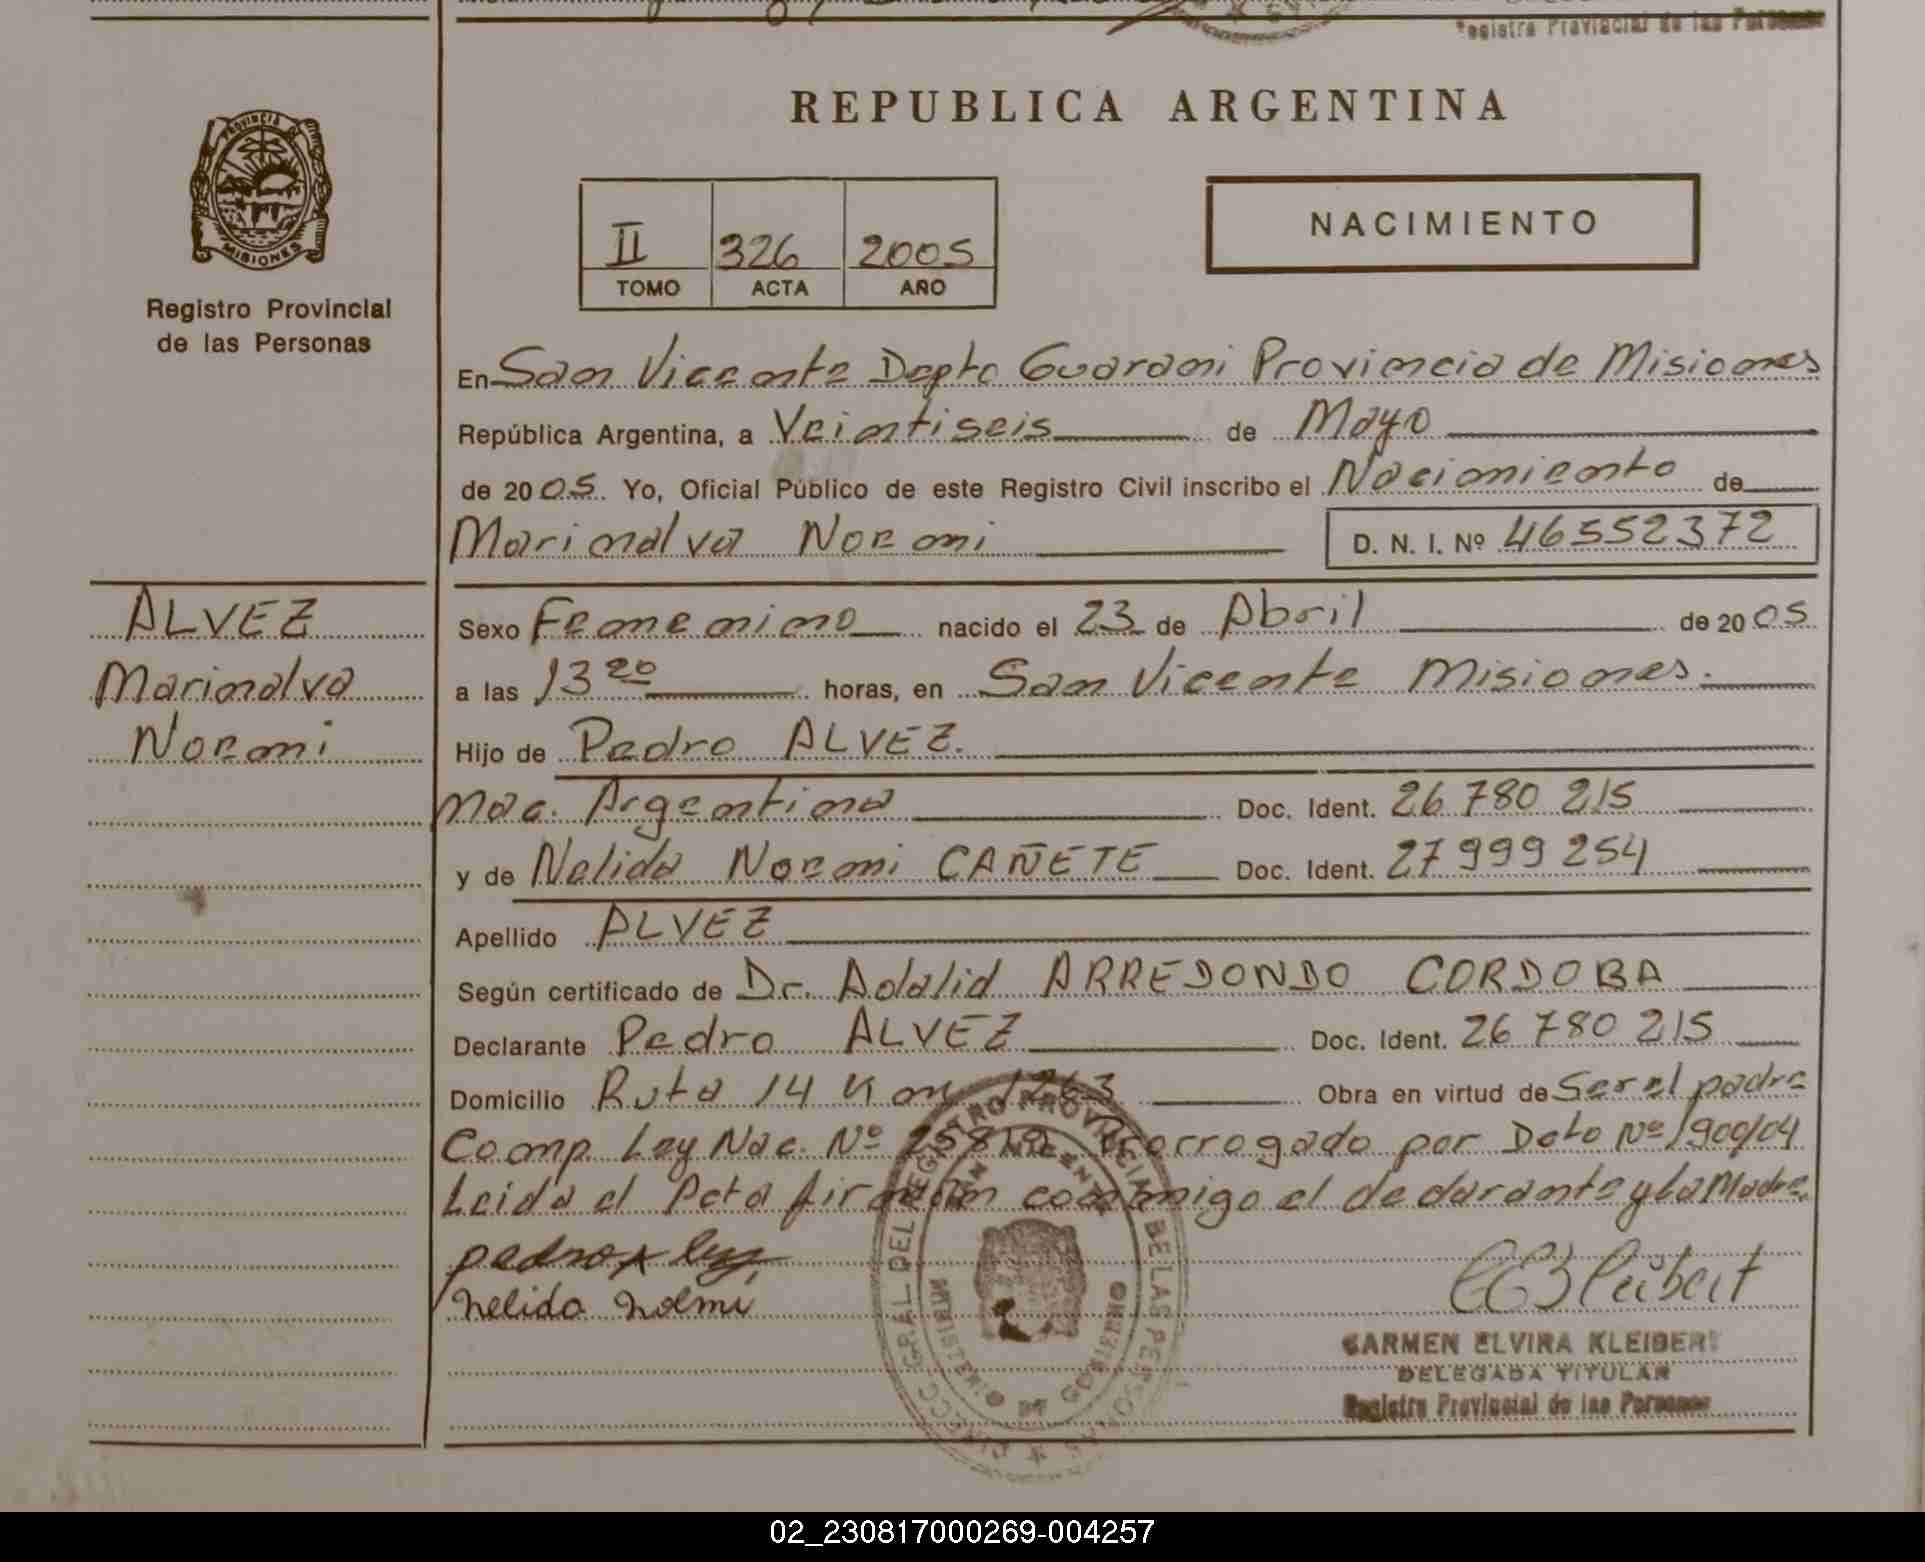 Registro Provincial de las Personas
REPUBLICA ARGENTINA
PROVINCIA DE
MISIONES
Registro Provincial
de las Personas
II 326 2005
TOMO ACTA AÑO
NACIMIENTO
En San Vicente Depto Guarani Provincia de Misiones
República Argentina, a Veintiseis de Mayo
de 2005. Yo, Oficial Público de este Registro Civil inscribo el Nacimiento de
Marinalva Noemi D. N. I. Nº 46552372
ALVEZ
Marinalva
Noemi
Sexo Femenino nacido el 23 de Abril de 2005
a las 13 20 horas, en San Vicente Misiones.
Hijo de Pedro ALVEZ.
Nac. Argentina Doc. Ident. 26 780 215
y de Nelida Noemi CAÑETE Doc. Ident. 27 999 254
Apellido ALVEZ
Según certificado de Dr. Adalid ARREDONDO CORDOBA
Declarante Pedro ALVEZ Doc. Ident. 26 780 215
Domicilio Ruta 14 Km 1263 Obra en virtud de Ser el padre
Comp. Ley Nac. Nº 25819 Prorrogado por Dcto Nº 1900/04
Leida el Acta firman conmigo el declarante y la Madre.
nelida noemi
DIRECC. GRAL DEL REGISTRO PROVINCIAL DE LAS PERSONAS
SAN VICENTE
MINISTERIO DE GOBIERNO
CARMEN ELVIRA KLEIBERT
DELEGADA TITULAR
Registro Provincial de las Personas
02_230817000269-004257